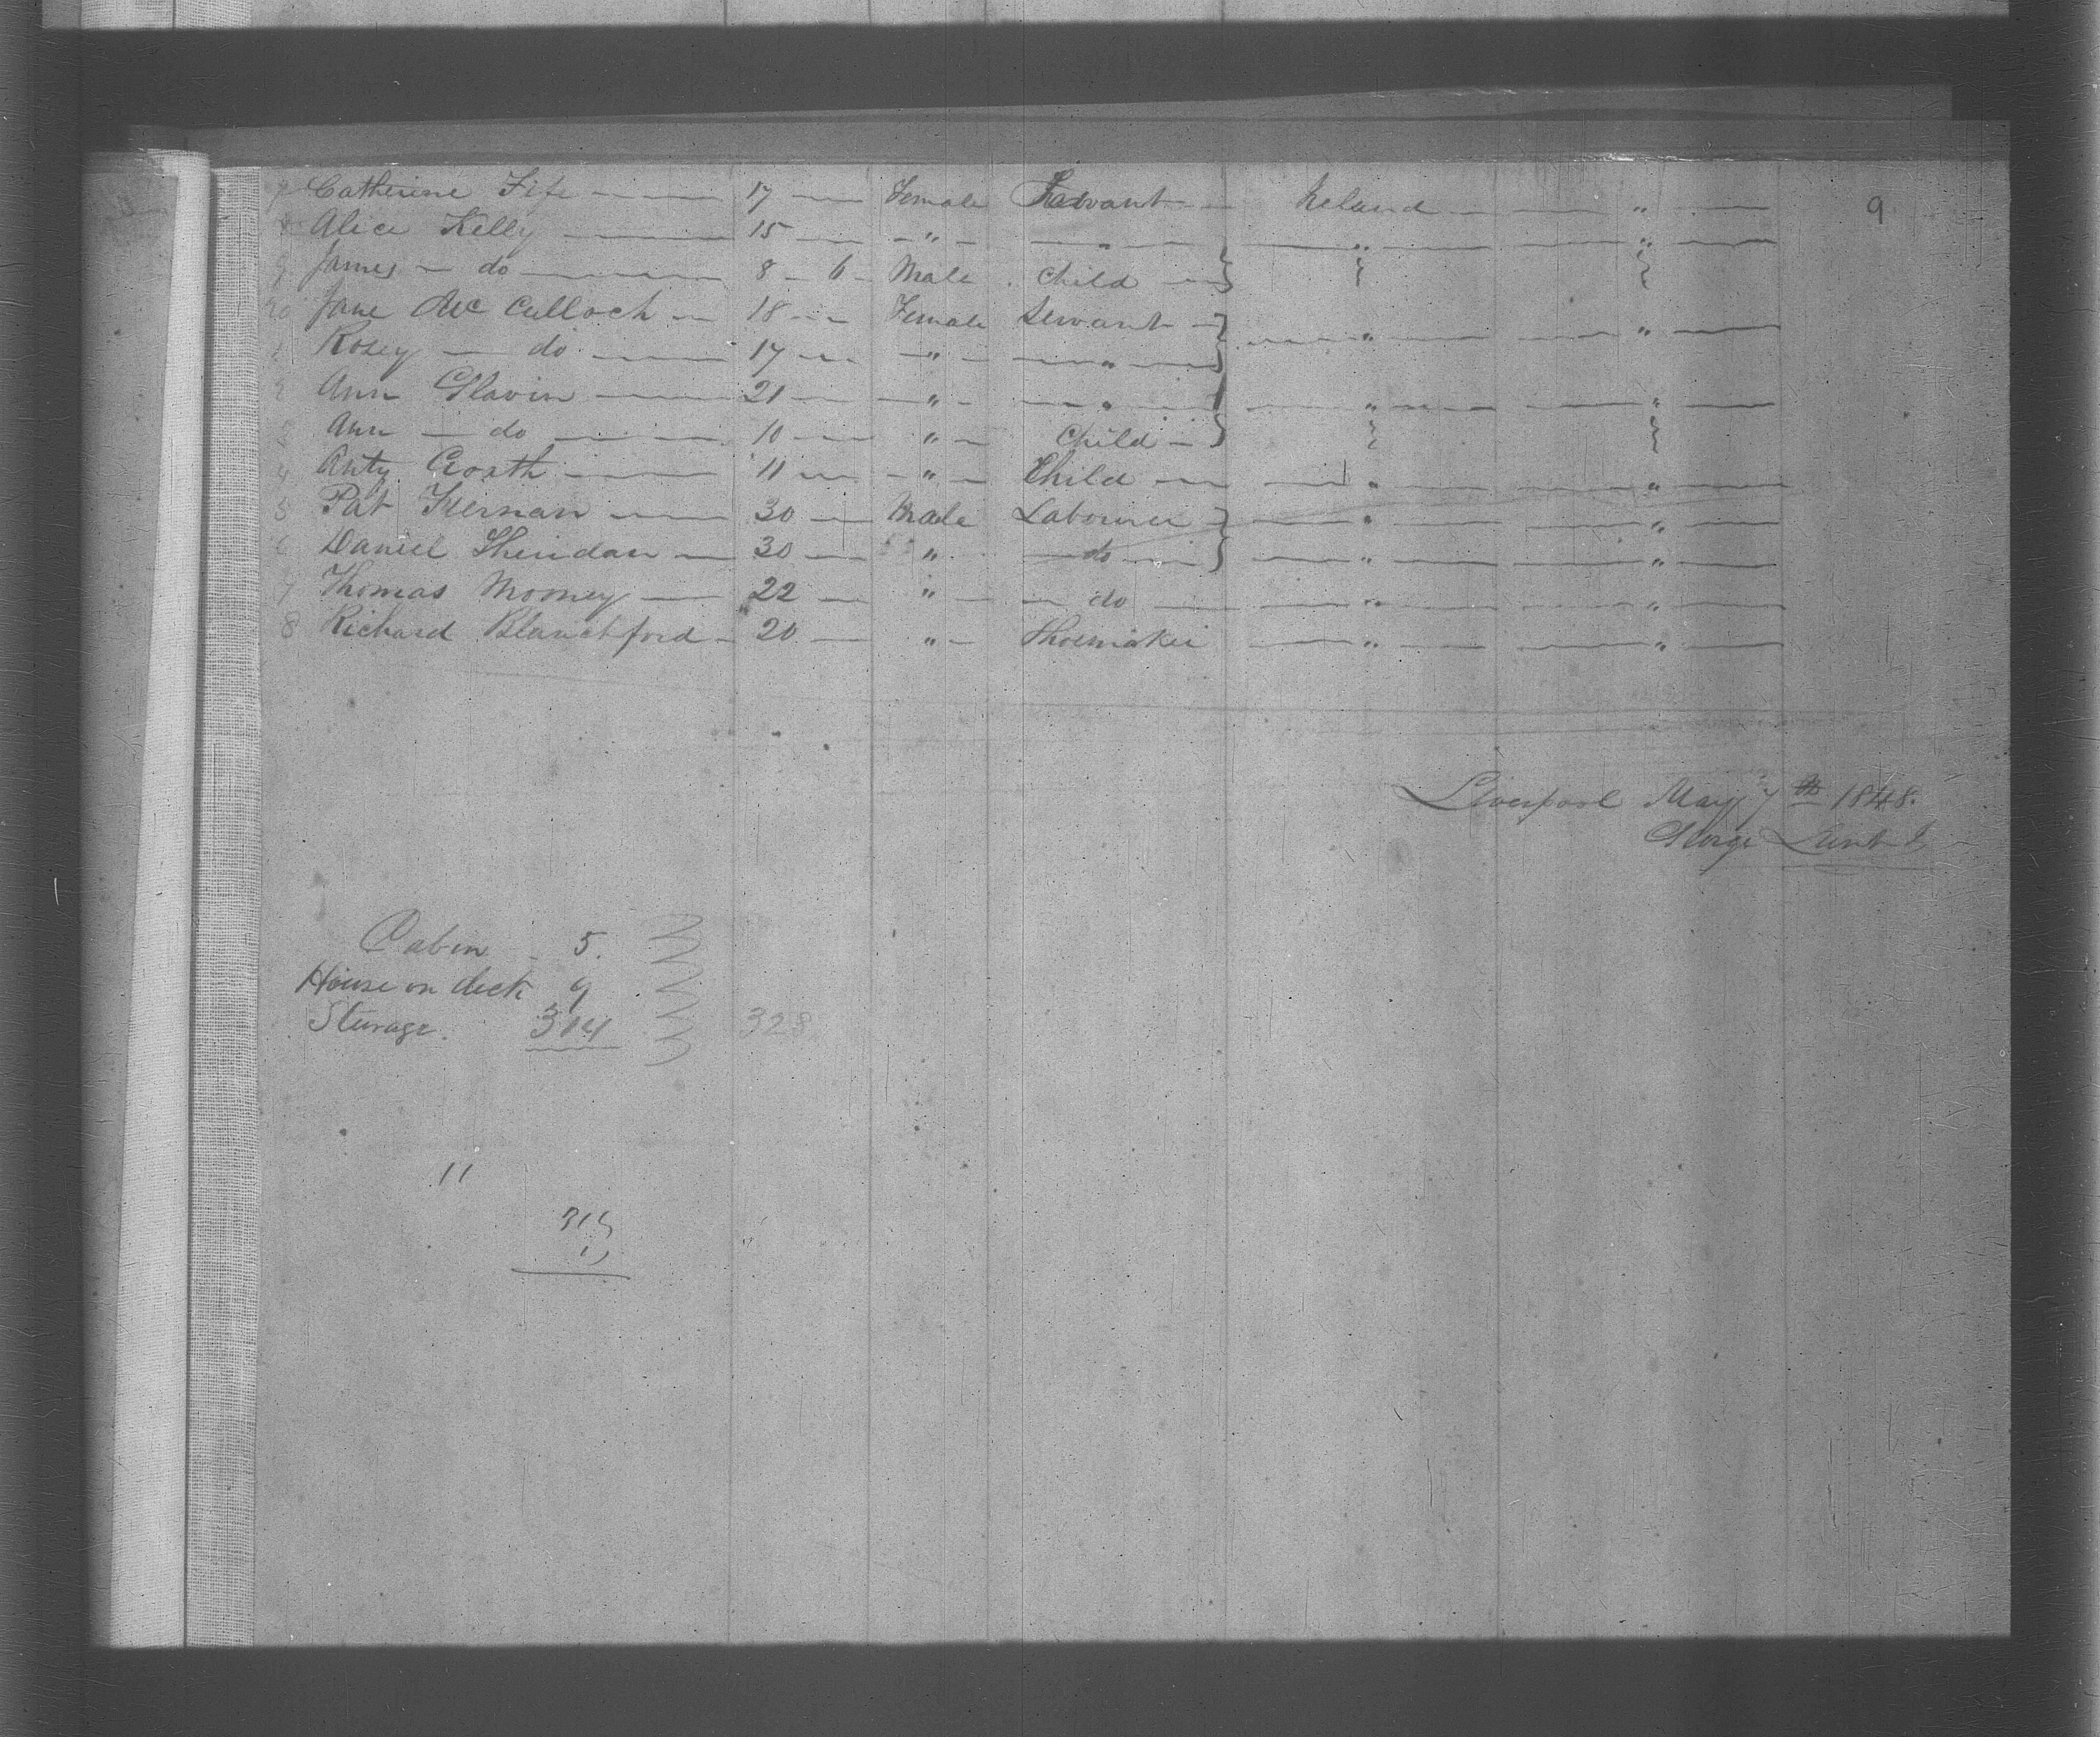 7 Catherine Fife 17 Female Servant Ireland " 9
8 Alice Kelly 15 " " " "
9 James do 8 6 Male Child
20 Jane McCulloch 18 Female Servant " "
Rosey do 17 " "
2 Ann Glavin 21 " " " "
3 Ann do 10 " Child
4 Anty 11 " Child " "
5 Pat Kiernan 30 Male Labourer " "
6 Daniel Sheridan 30 " do " "
7 Thomas Mooney 22 " do " "
8 Richard Blanchford 20 " Shoemaker " "
Liverpool May 7th 1848.
George Lunt
Cabin 5.
House on deck 9
Sterage. 314 328
11